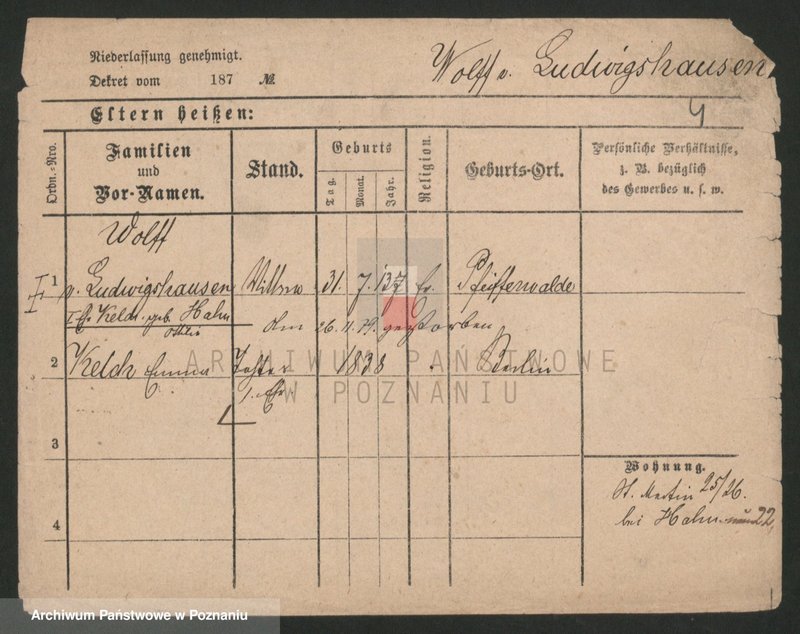 Niederlassung genehmigt.
Dekret vom 187 №
Wolff v. Ludwigshausen
4
Eltern heißen:
Ordn.-Nro.
Familien
und
Vor-Namen.
Stand.
Geburts
Tag.
Monat.
Jahr.
Religion.
Geburts-Ort.
Persönliche Verhältnisse,
z. B. bezüglich
des Gewerbes u. s. w.
Wolff
1 v. Ludwigshausen Wittwe 31. 7. Pfeifferwalde
geb. Hahn
am 26. 11. 79. gestorben
2 Kelch Emma Tochter 1838 Berlin
1. Ehe
3
4
Wohnung.
St. Martin 25/26.
bei Hahn 22
ARCHIWUM PAŃSTWOWE
W POZNANIU
Archiwum Państwowe w Poznaniu